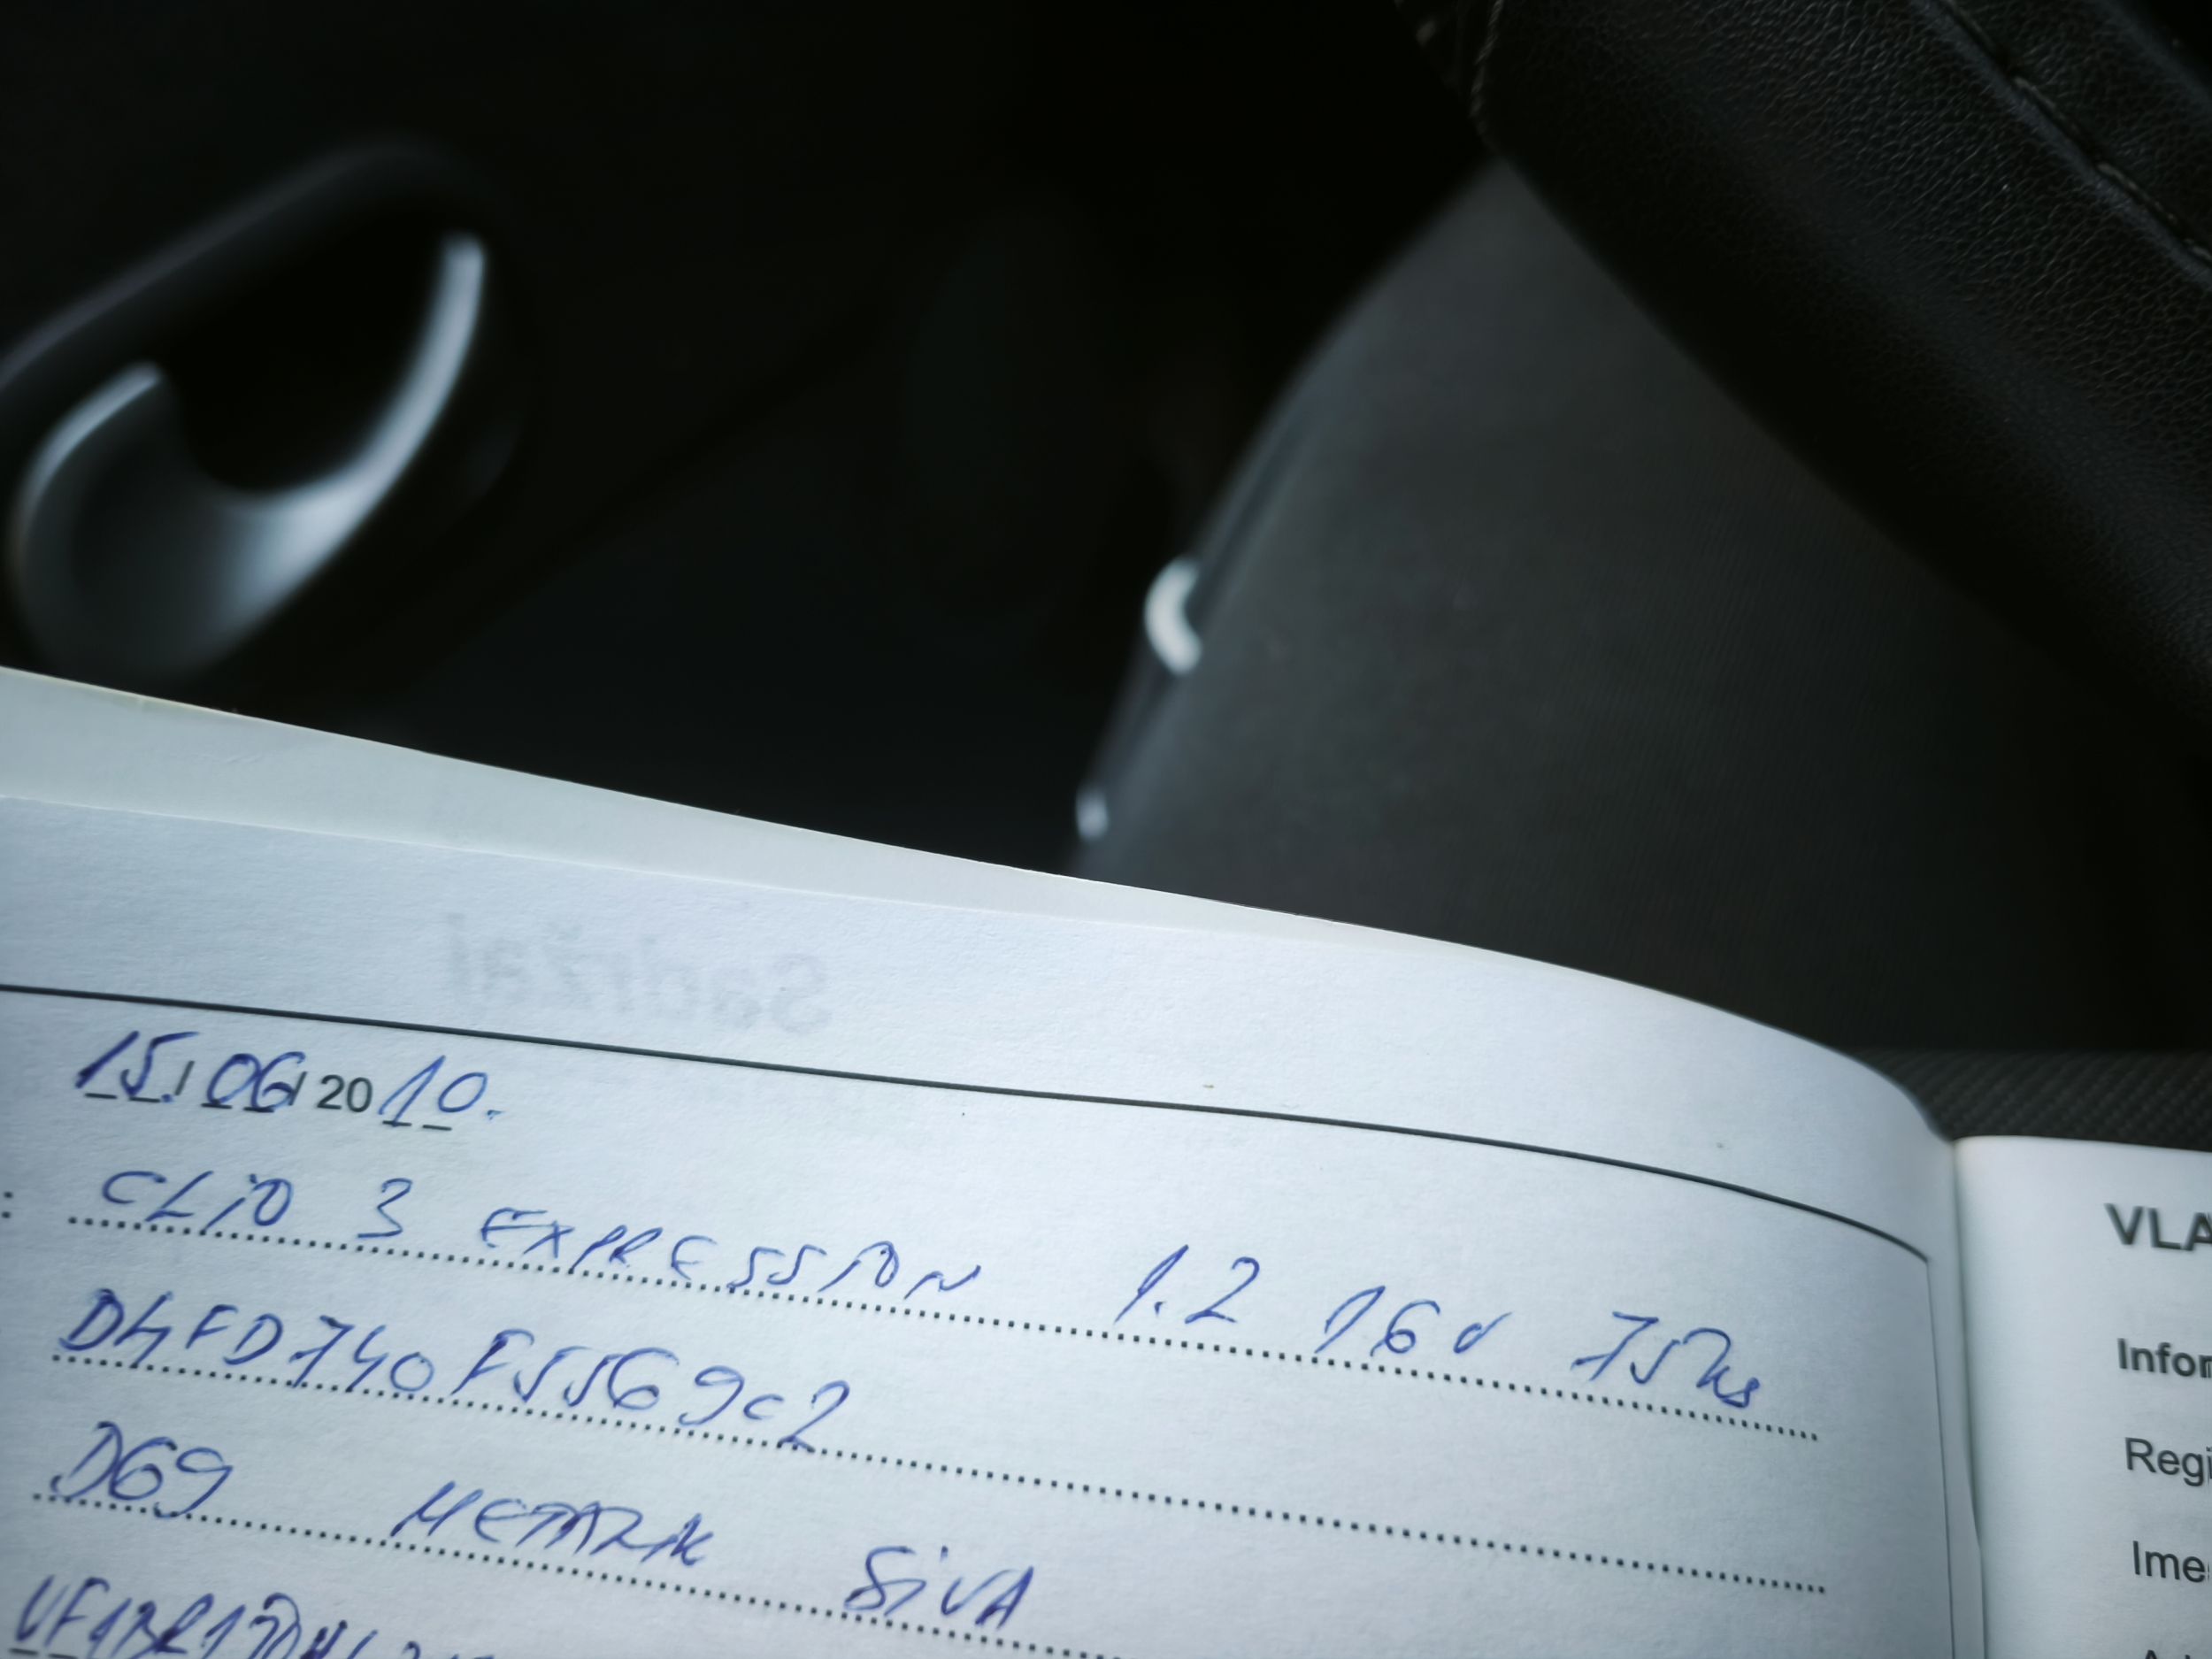 Sadržaj
15. / 06 / 20 10.
: CLiO 3 EXPRESSION 1.2 16V 75ks
D4FD740F5569c2
D69 METALIK SiVA
VLA
Infor
Regi
Ime